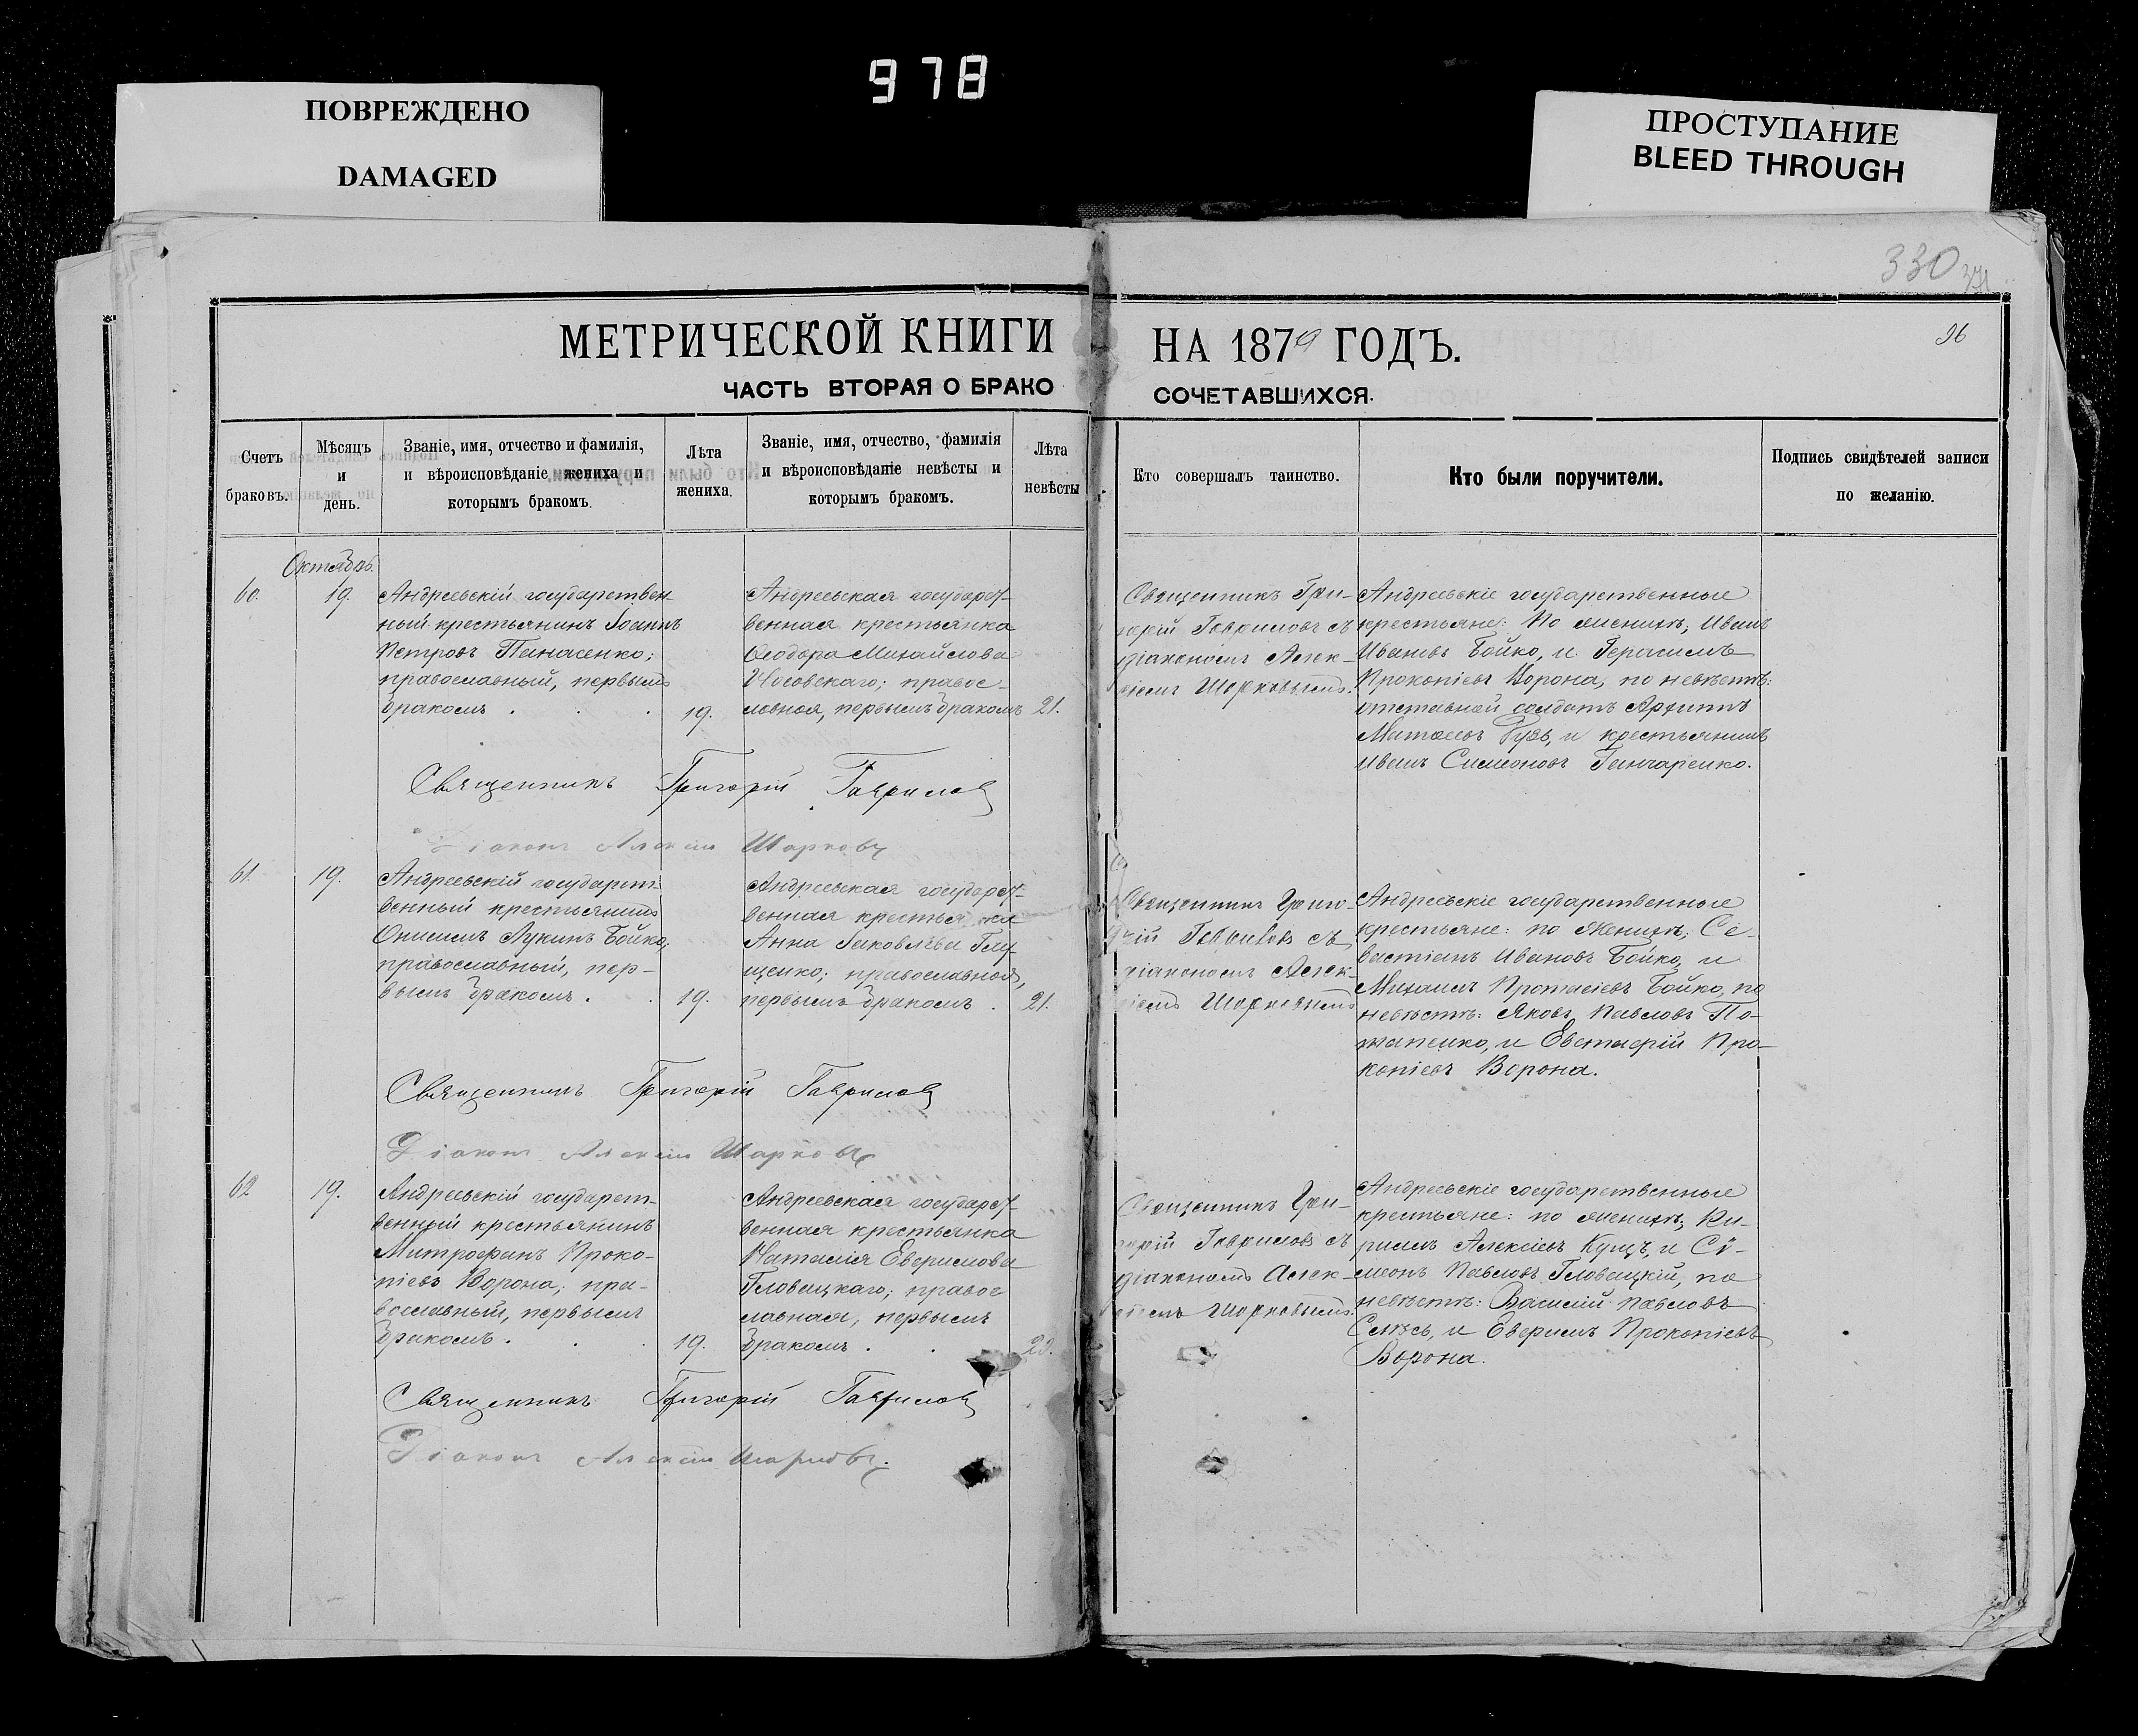 978
ПОВРЕЖДЕНО
DAMAGED
ПРОСТУПАНИЕ
BLEED THROUGH
330
МЕТРИЧЕСКОЙ КНИГИ НА 1879 ГОДЪ.
96
ЧАСТЬ ВТОРАЯ О БРАКОСОЧЕТАВШИХСЯ.
Счетъ
браковъ.
Мѣсяцъ
и
день.
Званіе, имя, отчество и фамилія,
и вѣроисповѣданіе жениха и
которымъ бракомъ.
Лѣта
жениха.
Званіе, имя, отчество, фамилія
и вѣроисповѣданіе невѣсты и
которымъ бракомъ.
Лѣта
невѣсты
Кто совершалъ таинство.
Кто были поручители.
Подпись свидѣтелей записи
по желанію.
Октябрь.
60.
19.
Андреевскій государствен
ный крестьянинъ Іоаннъ
Петровъ Панасенко;
православный, первымъ
бракомъ .
19.
Андреевская государст-
венная крестьянка
Ѳеодора Михайлова
Носовскаго; правос-
лавная, первымъ бракомъ
21.
Священникъ Гри-
горій Гавриловъ съ
діакономъ Алек-
сіемъ Шарковымъ.
Андреевскіе государственные
крестьяне: По женихѣ; Иванъ
Ивановъ Бойко, и Герасимъ
Прокопіевъ Ворона, по невѣстѣ:
отставной солдатъ Архипъ
Матвеевъ Гузь, и крестьянинъ
Иванъ Симеоновъ Ганчаренко.
Священникъ Григорій Гавриловъ
Діаконъ Алексій Шарковъ
61.
19.
Андреевскій государст-
венный крестьянинъ
Онисимъ Лукинъ Бойко,
православный, пер-
вымъ бракомъ .
19.
Андреевская государст-
венная крестьянка
Анна Яковлева Глу-
щенко; православная,
первымъ бракомъ .
21.
Священникъ Григо-
рій Гавриловъ съ
діакономъ Алек-
сіемъ Шарковымъ
Андреевскіе государственные
крестьяне: по женихѣ; Се-
вастіанъ Ивановъ Бойко, и
Михаилъ Протасіевъ Бойко, по
невѣстѣ: Яковъ Павловъ По-
тапенко, и Евстафій Про-
копіевъ Ворона.
Священникъ Григорій Гавриловъ
Діаконъ Алексій Шарковъ
62
19.
Андреевскій государст-
венный крестьянинъ
Митрофанъ Проко-
піевъ Ворона; пра-
вославный, первымъ
бракомъ .
19.
Андреевская государст-
венная крестьянка
Наталія Евфимова
Гловацкаго; правос
лавная, первымъ
бракомъ .
Священникъ Гри-
горій Гавриловъ съ
діакономъ Алек-
сіемъ Шарковымъ.
Андреевскіе государственные
крестьяне: по женихѣ; Ки-
риллъ Алексіевъ Куцъ, и Си-
меонъ Павловъ Гловацкій, по
невѣстѣ: Василій Павловъ
и Евфимъ Прокопіевъ
Ворона.
Священникъ Григорій Гавриловъ
Діаконъ Алексій Шарковъ.